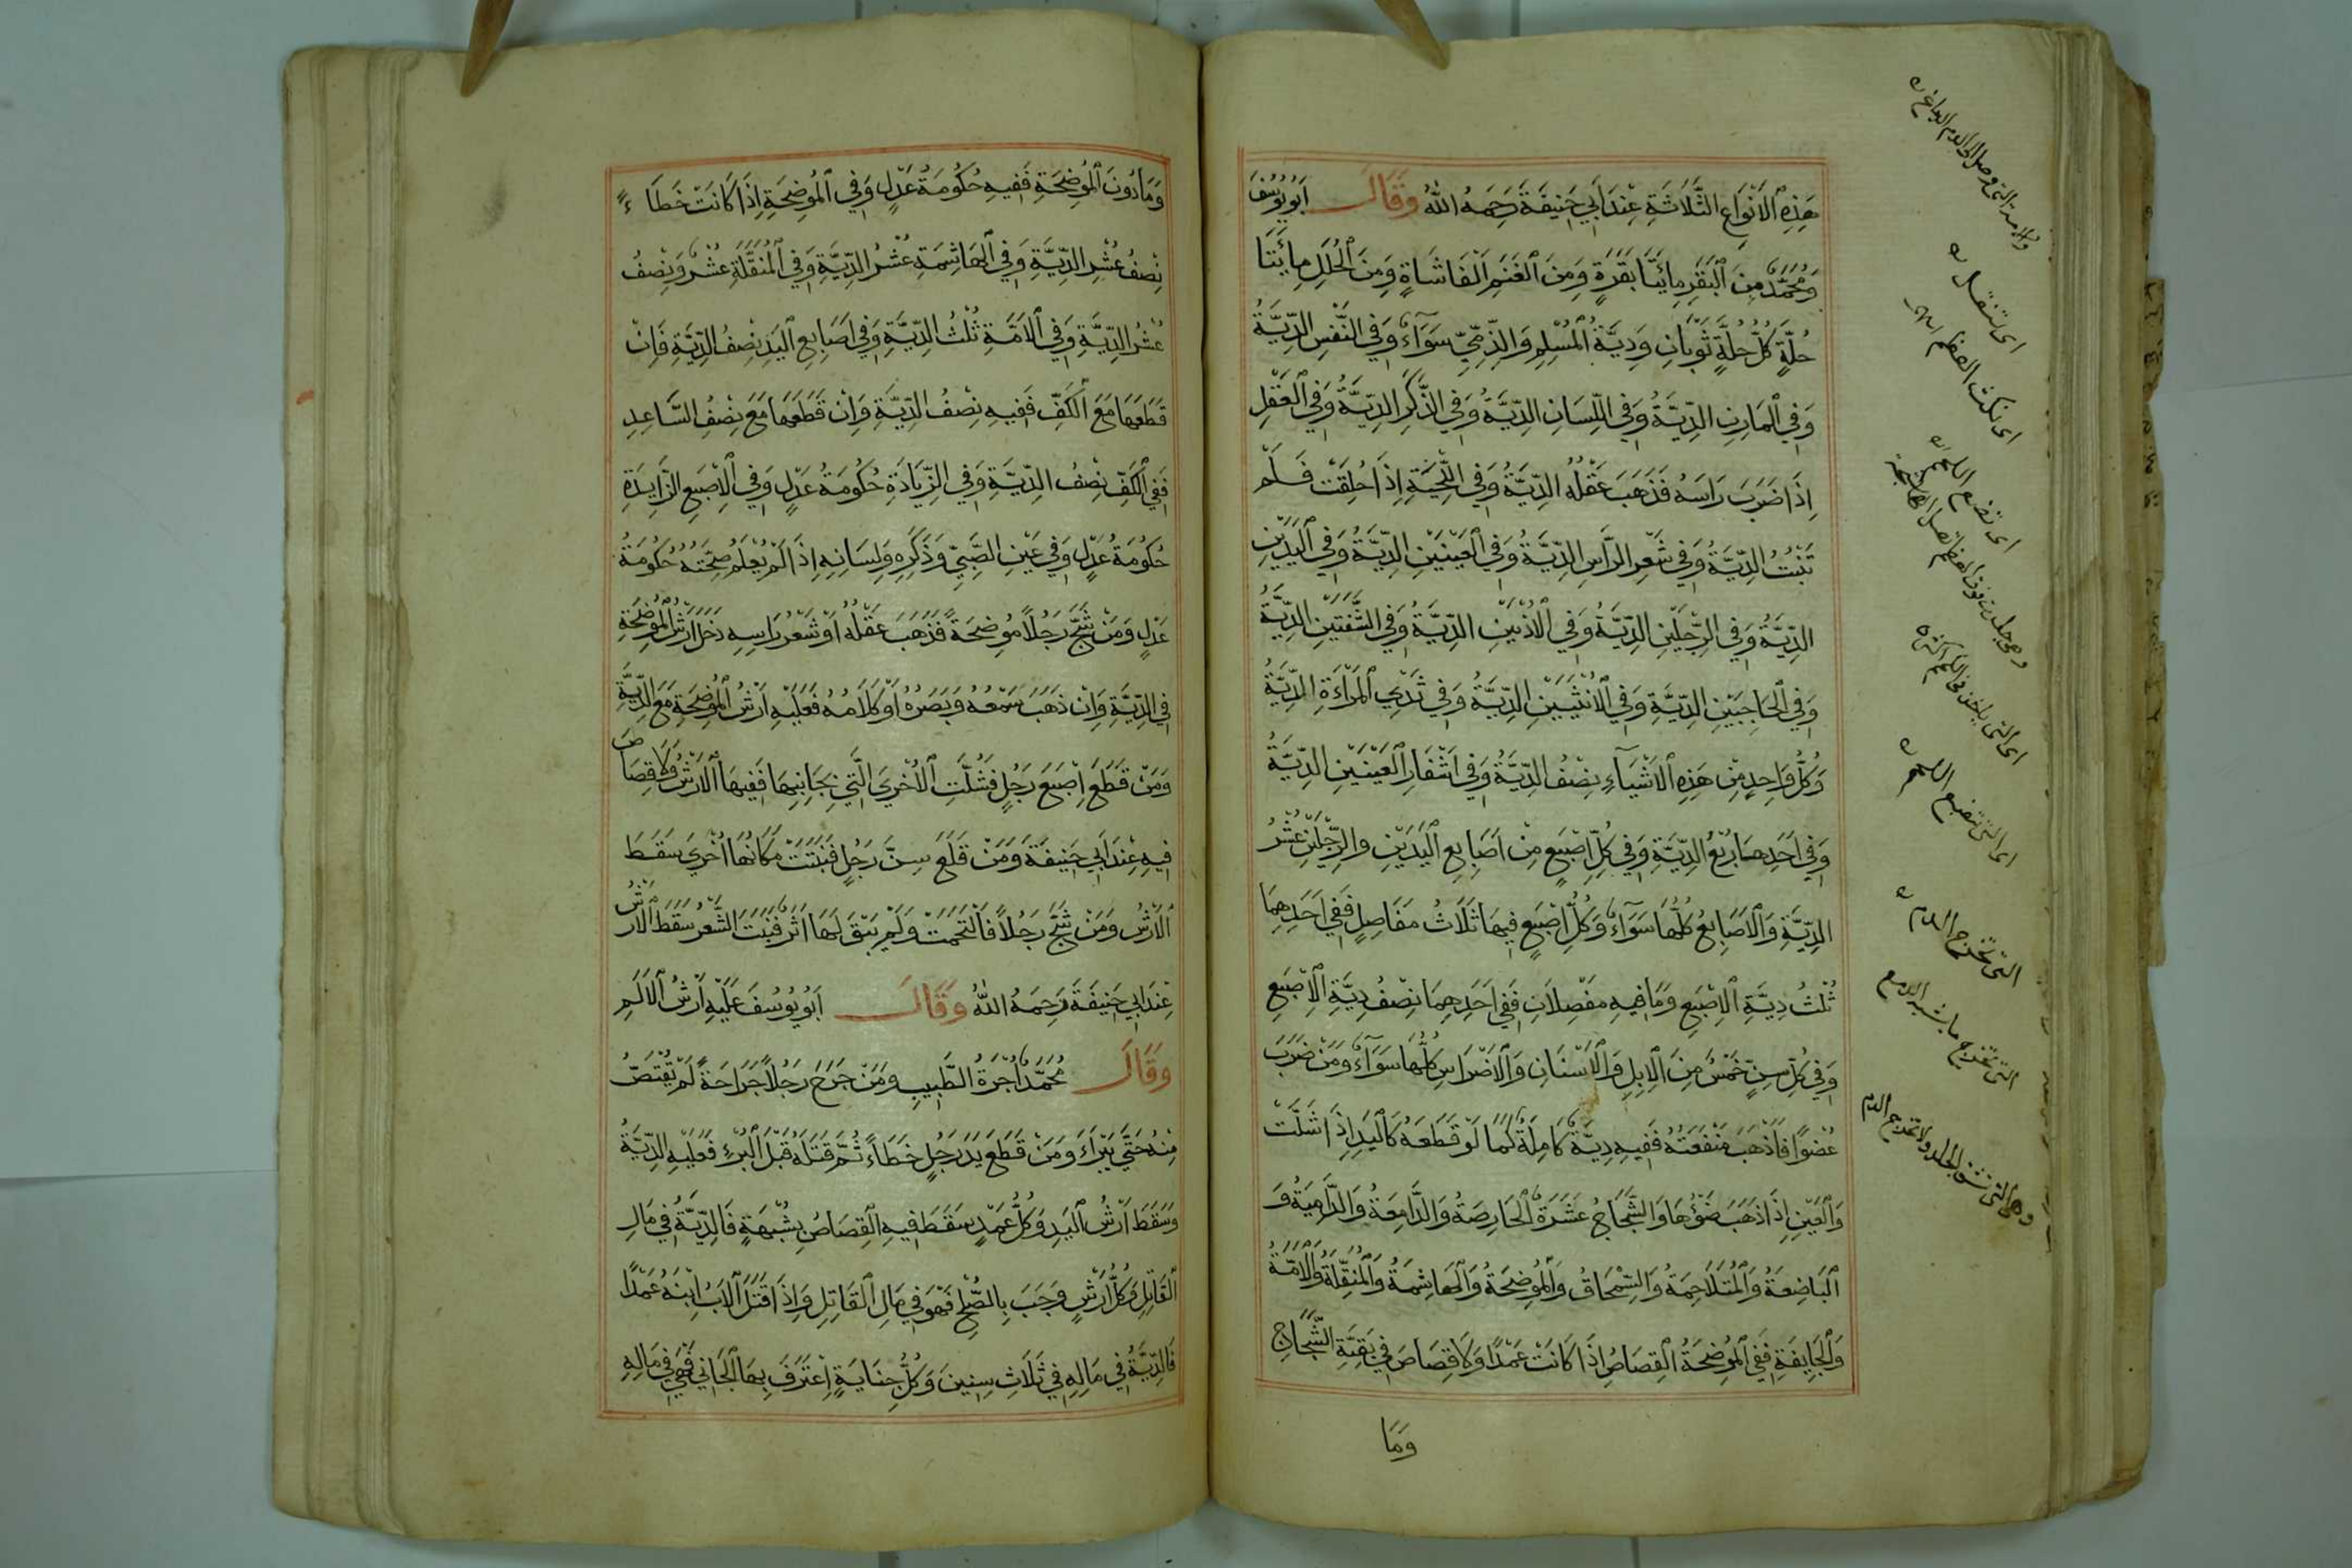 هَذِهِ الْأَنْوَاعِ الثَّلَاثَةِ عِنْدَ أَبِي حَنِيفَةَ رَحِمَهُ اللهُ وَقَالَ أَبُو يُوسُفَ
وَمُحَمَّدٌ مِنَ الْبَقَرِ مِائَتَا بَقَرَةٍ وَمِنَ الْغَنَمِ أَلْفَا شَاةٍ وَمِنَ الْحُلَلِ مِائَتَا
حُلَّةٍ كُلُّ حُلَّةٍ ثَوْبَانِ وَدِيَةُ الْمُسْلِمِ وَالذِّمِّيِّ سَوَآءٌ وَفِي النَّفْسِ الدِّيَةُ
وَفِي الْمَارِنِ الدِّيَةُ وَفِي اللِّسَانِ الدِّيَةُ وَفِي الذَّكَرِ الدِّيَةُ وَفِي الْعَقْلِ
اِذَا ضَرَبَ رَاسَهُ فَذَهَبَ عَقْلُهُ الدِّيَةُ وَفِي اللِّحْيَةِ اِذَا حُلِقَتْ فَلَمْ
تَنْبُتْ الدِّيَةُ وَفِي شَعْرِ الرَّاسِ الدِّيَةُ وَفِي الْعَيْنَيْنِ الدِّيَةُ وَفِي الْيَدَيْنِ
الدِّيَةُ وَفِي الرِّجْلَيْنِ الدِّيَةُ وَفِي الْأُذْنَيْنِ الدِّيَةُ وَفِي الشَّفَتَيْنِ الدِّيَةُ
وَفِي الْحَاجِبَيْنِ الدِّيَةِ وَفِي الْأُنْثَيَيْنِ الدِّيَةُ وَفِي ثَدْيِ الْمَرْأَةِ الدِّيَةُ
وَكُلُّ وَاحِدٍ مِنْ هَذِهِ الْأَشْيَآءِ نِصْفُ الدِّيَةُ وَفِي اَشْفَارِ الْعَيْنَيْنِ الدِّيَةُ
وَفِي اَحَدِهِمَا رُبْعُ الدِّيَةِ وَفِي كُلِّ اِصْبَعٍ مِنْ اَصَابِعِ الْيَدَيْنِ وَالرِّجْلَيْنِ عُشْرُ
الدِّيَةِ وَالْأَصَابِعُ كُلُّهَا سَوَآءٌ وَكُلُّ اِصْبَعٍ فِيهَا ثَلَاثُ مَفَاصِلٍ فَفِي اَحَدِهِمَا
ثُلْثُ دِيَةِ الْاِصْبَعِ وَمَا فِيهِ مَفْصِلَانِ فَفِي اَحَدِهِمَا نِصْفُ دِيَةِ الْاِصْبَعِ
وَفِي كُلِّ سِنٍّ خَمْسٌ مِنَ الْاِبِلِ وَالْأَسْنَانِ وَالْأَضْرَاسِ كُلُّهَا سَوَآءٌ وَمَنْ ضَرَبَ
عُضْوًا فَاَذْهَبَ مَنْفَعَتَهُ فَفِيهِ دِيَةٌ كَامِلَةٌ كَمَا لَوْ قَطَعَهُ كَالْيَدِ اِذَا شَلَّتْ
وَالْعَيْنِ اِذَا ذَهَبَ ضَوْؤُهَا وَالشِّجَاجُ عَشَرَةٌ الْحَارِصَةُ وَالدَّامِعَةُ وَالدَّامِيَةُ وَ
الْبَاضِعَةُ وَالْمُتَلَاحِمَةُ وَالسِّمْحَاقُ وَالْمُوضِحَةُ وَالْهَاشِمَةُ وَالْمُنَقِّلَةُ وَالْآمَّةُ
وَالْجَايِفَةِ فَفِي الْمُوضِحَةُ الْقِصَاصُ اِذَا كَانَتْ عَمْدًا وَلَا قِصَاصَ فِي بَقِيَّةِ الشِّجَاجِ
وَمَا
اى تنقل
اى تكسر العظم
اى تقطع اللحم
التى تخرج الدم
التى تخرج ما يشبه الدمع
وهى التى تشق الجلد ولا تخرج الدم
وَمَا دُونَ الْمُوضِحَةِ فَفِيهِ حُكُومَةُ عَدْلٍ وَفِي الْمُوضِحَةِ اِذَا كَانَتْ خَطَاءً
نِصْفُ عُشْرِ الدِّيَةِ وَفِي الْهَاشِمَةِ عُشْرُ الدِّيَةِ وَفِي الْمُنَقِّلَةِ عُشْرٌ وَنِصْفُ
عُشْرِ الدِّيَةِ وَفِي الْآمَّةِ ثُلْثُ الدِّيَةِ وَفِي اَصَابِعِ الْيَدِ نِصْفُ الدِّيَةِ فَاِنْ
قَطَعَهَا مَعَ الْكَفِّ فَفِيهِ نِصْفُ الدِّيَةِ وَاِنْ قَطَعَهَا مَعَ نِصْفُ السَّاعِدِ
فَفِي الْكَفِّ نِصْفُ الدِّيَةِ وَفِي الزِّيَادَةِ حُكُومَةُ عَدْلٍ وَفِي الْاِصْبَعِ الزَّايِدَةِ
حُكُومَةُ عَدْلٍ وَفِي عَيْنِ الصَّبِيِّ وَذَكَرِهِ وَلِسَانِهِ اِذَا لَمْ يُعْلَمْ صِحَّتُهُ حُكُومَةُ
عَدْلٍ وَمَنْ شَجَّ رَجُلًا مُوضِحَةً فَذَهَبَ عَقْلُهُ اَوْ شَعْرُ رَاسِهِ دَخَلَ اَرْشُ الْمُوضِحَةِ
فِي الدِّيَةِ وَاِنْ ذَهَبَ سَمْعُهُ وَبَصَرُهُ اَوْ كَلَامُهُ فَعَلَيْهِ اَرْشُ الْمُوضِحَةِ مَعَ الدِّيَةِ
وَمَنْ قَطَعَ اِصْبَعَ رَجُلٍ فَشُلَّتِ الْأُخْرَى الَّتِي بِجَانِبِهَا فَفِيهَا الْأَرْشُ وَلَا قِصَاصَ
فِيهِ عِنْدَ اَبِي حَنِيفَةَ وَمَنْ قَلَعَ سِنَّ رَجُلٍ فَنَبَتَتْ مَكَانُهَا اُخْرَى سَقَطَ
الْأَرْشُ وَمَنْ شَجَّ رَجُلًا فَالْتَحَمَتْ وَلَمْ يَبْقَ لَهَا اَثَرٌ فَنَبَتَ الشَّعْرُ سَقَطَ الْأَرْشُ
عِنْدَ اَبِي حَنِيفَةَ رَحِمَهُ اللهُ وَقَالَ اَبُو يُوسُفَ عَلَيْهِ اَرْشُ الْأَلَمِ
وَقَالَ مُحَمَّدٌ اُجْرَةُ الطَّبِيبِ وَمَنْ جَرَحَ رَجُلًا جَرَاحَةً لَمْ يُقْتَصُّ
مِنْهُ حَتَّى يَبْرَاءَ وَمَنْ قَطَعَ يَدَ رَجُلٍ خَطَاءً ثُمَّ قَتَلَهُ قَبْلَ الْبُرْءِ فَعَلَيْهِ الدِّيَةُ
وَسَقَطَ اَرْشُ الْيَدِ وَكُلُّ عَمْدٍ سَقَطَ فِيهِ الْقِصَاصُ بِشُبْهَةٍ فَالدِّيَةُ فِي مَالِ
الْقَاتِلِ وَكُلُّ اَرْشٍ وَجَبَ بِالصُّلْحِ فَهُوَ فِي مَالِ الْقَاتِلِ وَاِذَا قَتَلَ الْأَبُ اِبْنَهُ عَمْدًا
فَالدِّيَةُ فِي مَالِهِ فِي ثَلَاثِ سِنِينَ وَكُلُّ جِنَايَةٍ اِعْتَرَفَ بِهَا الْجَانِي فَهِيَ فِي مَالِهِ